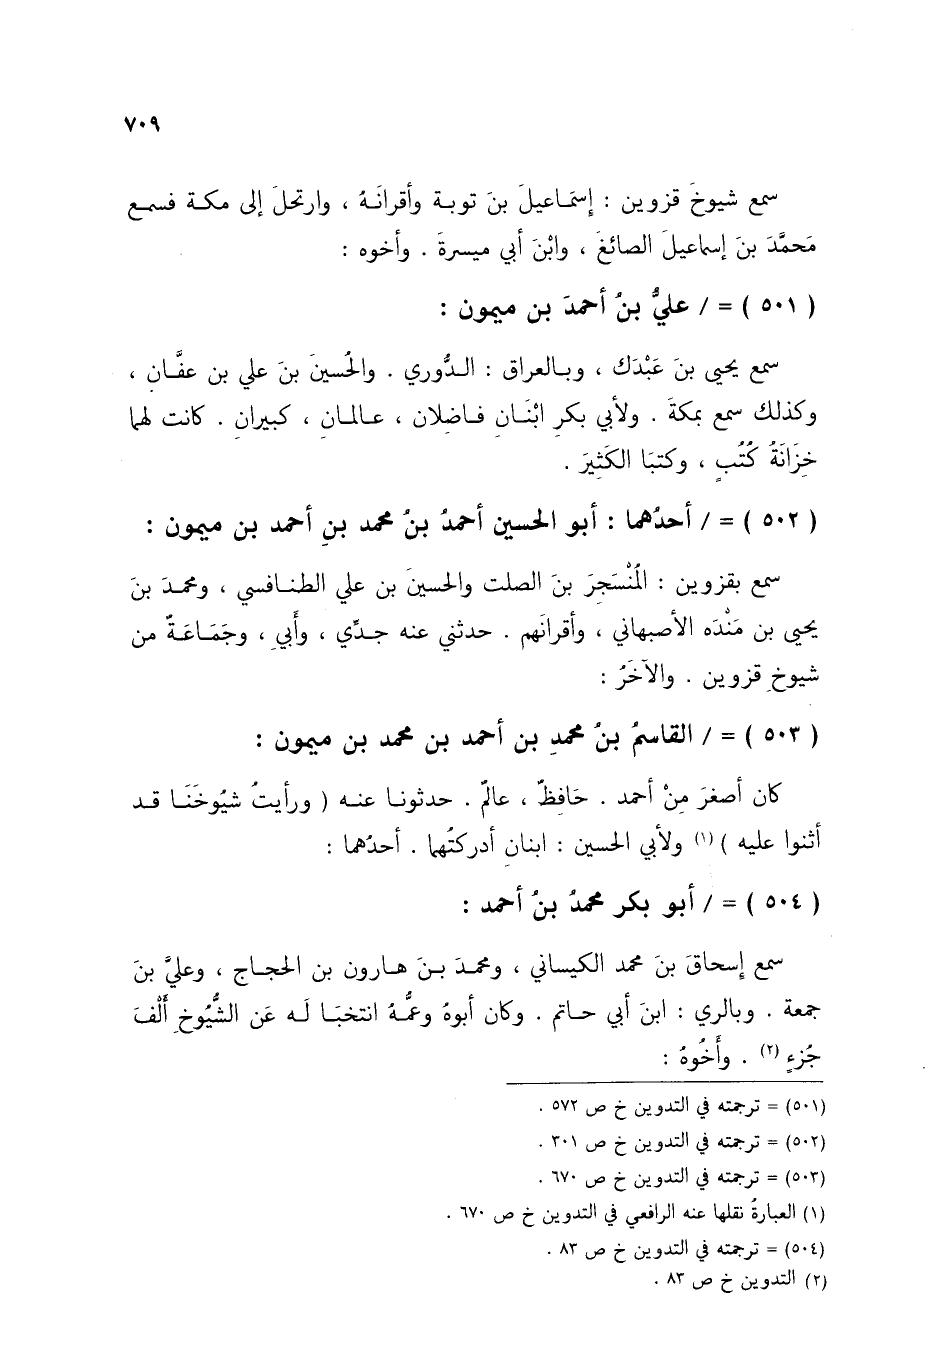 ٧٠٩
سمع شيوخَ قزوين : إسْمَاعيلَ بنَ توبة وأقرانَهُ ، وارتحلَ إلى مكة فسمع
مَحمَّدَ بنَ إسماعيلَ الصائغَ ، وابْنَ أبي ميسرةَ . وأخوه :
( ٥٠١ ) = / عليُّ بنُ أحمدَ بن ميمون :
سمع يحيى بنَ عَبْدَك ، وبالعراق : الدُّوري . والحُسينَ بنَ علي بن عفَّان ،
وكذلك سمع بمكةَ . ولأبي بكرٍ ابْنَانِ فاضلان ، عالمان ، كبيران . كانت لهما
خِزَانَةُ كُتُبٍ ، وكتبَا الكَثِيرَ .
( ٥٠٢ ) = / أحدُهما : أبو الحسين أحمدُ بنُ محمد بنِ أحمد بن ميمون :
سمع بقزوين : المُنْسَجِرَ بنَ الصلت والحسينَ بن علي الطنافسي ، ومحمدَ بنَ
يحيى بن مَنْدَه الأصبهاني ، وأقرانَهم . حدثني عنه جدِّي ، وأبي ، وجَمَاعَةٌ من
شيوخِ قزوين . والآخَرُ :
( ٥٠٣ ) = / القاسمُ بنُ محمدِ بن أحمد بن محمد بن ميمون :
كان أصغرَ مِنْ أحمد . حَافِظٌ ، عالمٌ . حدثونا عنه ( ورأيتُ شيُوخَنَا قد
أثنوا عليه ) (١) ولأبي الحسين : ابنانِ أدركتُهما . أحدُهما :
( ٥٠٤ ) = / أبو بكر محمدُ بنُ أحمد :
سمع إسحاقَ بنَ محمد الكيساني ، ومحمدَ بنَ هارون بن الحجاج ، وعليَّ بنَ
جمعة . وبالري : ابنَ أبي حاتم . وكان أبوهُ وعمُّهُ انتخبَا لَه عَن الشُّيُوخِ أَلْفَ
جُزءٍ (٢) . وأَخُوهُ :
(٥٠١) = ترجمته في التدوين خ ص ٥٧٢ .
(٥٠٢) = ترجمته في التدوين خ ص ٣٠١ .
(٥٠٣) = ترجمته في التدوين خ ص ٦٧٠ .
(١) العبارةُ نقلها عنه الرافعي في التدوين خ ص ٦٧٠ .
(٥٠٤) = ترجمته في التدوين خ ص ٨٣ .
(٢) التدوين خ ص ٨٣ .